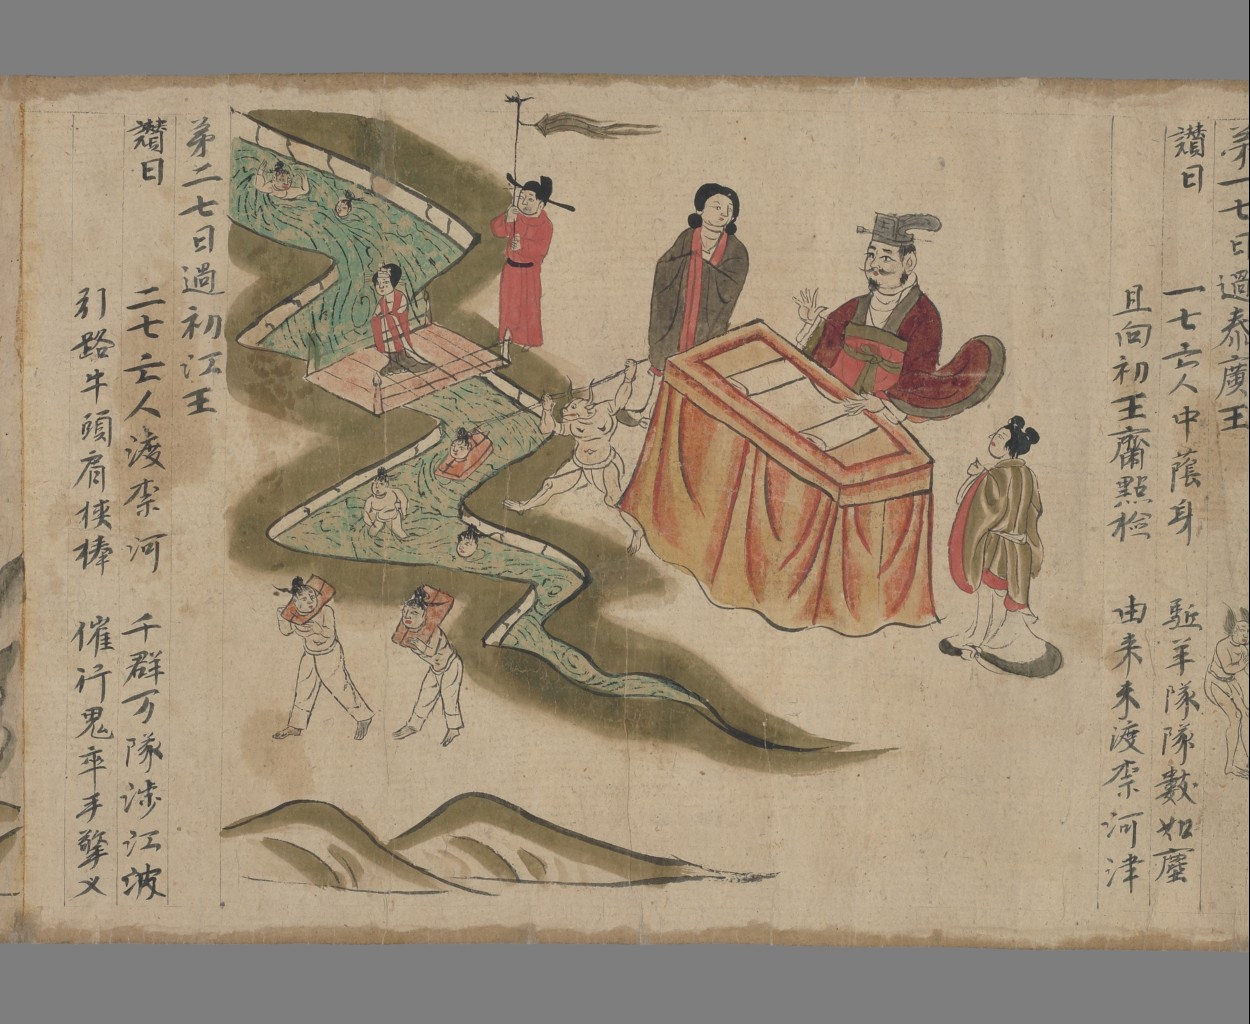 弟一七日過秦廣王
讃曰
一七亡人中蔭身 駈羊隊隊數如塵
且向初王齋點檢 由来未渡柰河津
弟二七日過初江王
讃曰
二七亡人渡柰河 千群万隊涉江波
引路牛頭肩挾棒 催行鬼卒手擎叉